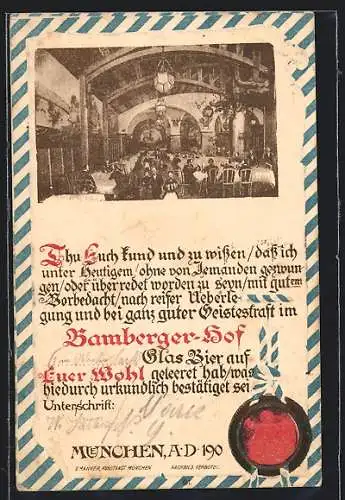 Thu Euch kund und zu wißen/daß ich
unter Heutigem/ohne von Jemanden gezwun-
gen/oder überredet worden zu seyn/mit gutem
Vorbedacht/nach reifer Ueberle-
gung und bei ganz guter Geisteskraft im
Bamberger-Hof
Glas Bier auf
Euer Wohl geleeret hab/was
hiedurch urkundlich bestätiget sei
Unterschrift:
MÜNCHEN, A·D·190